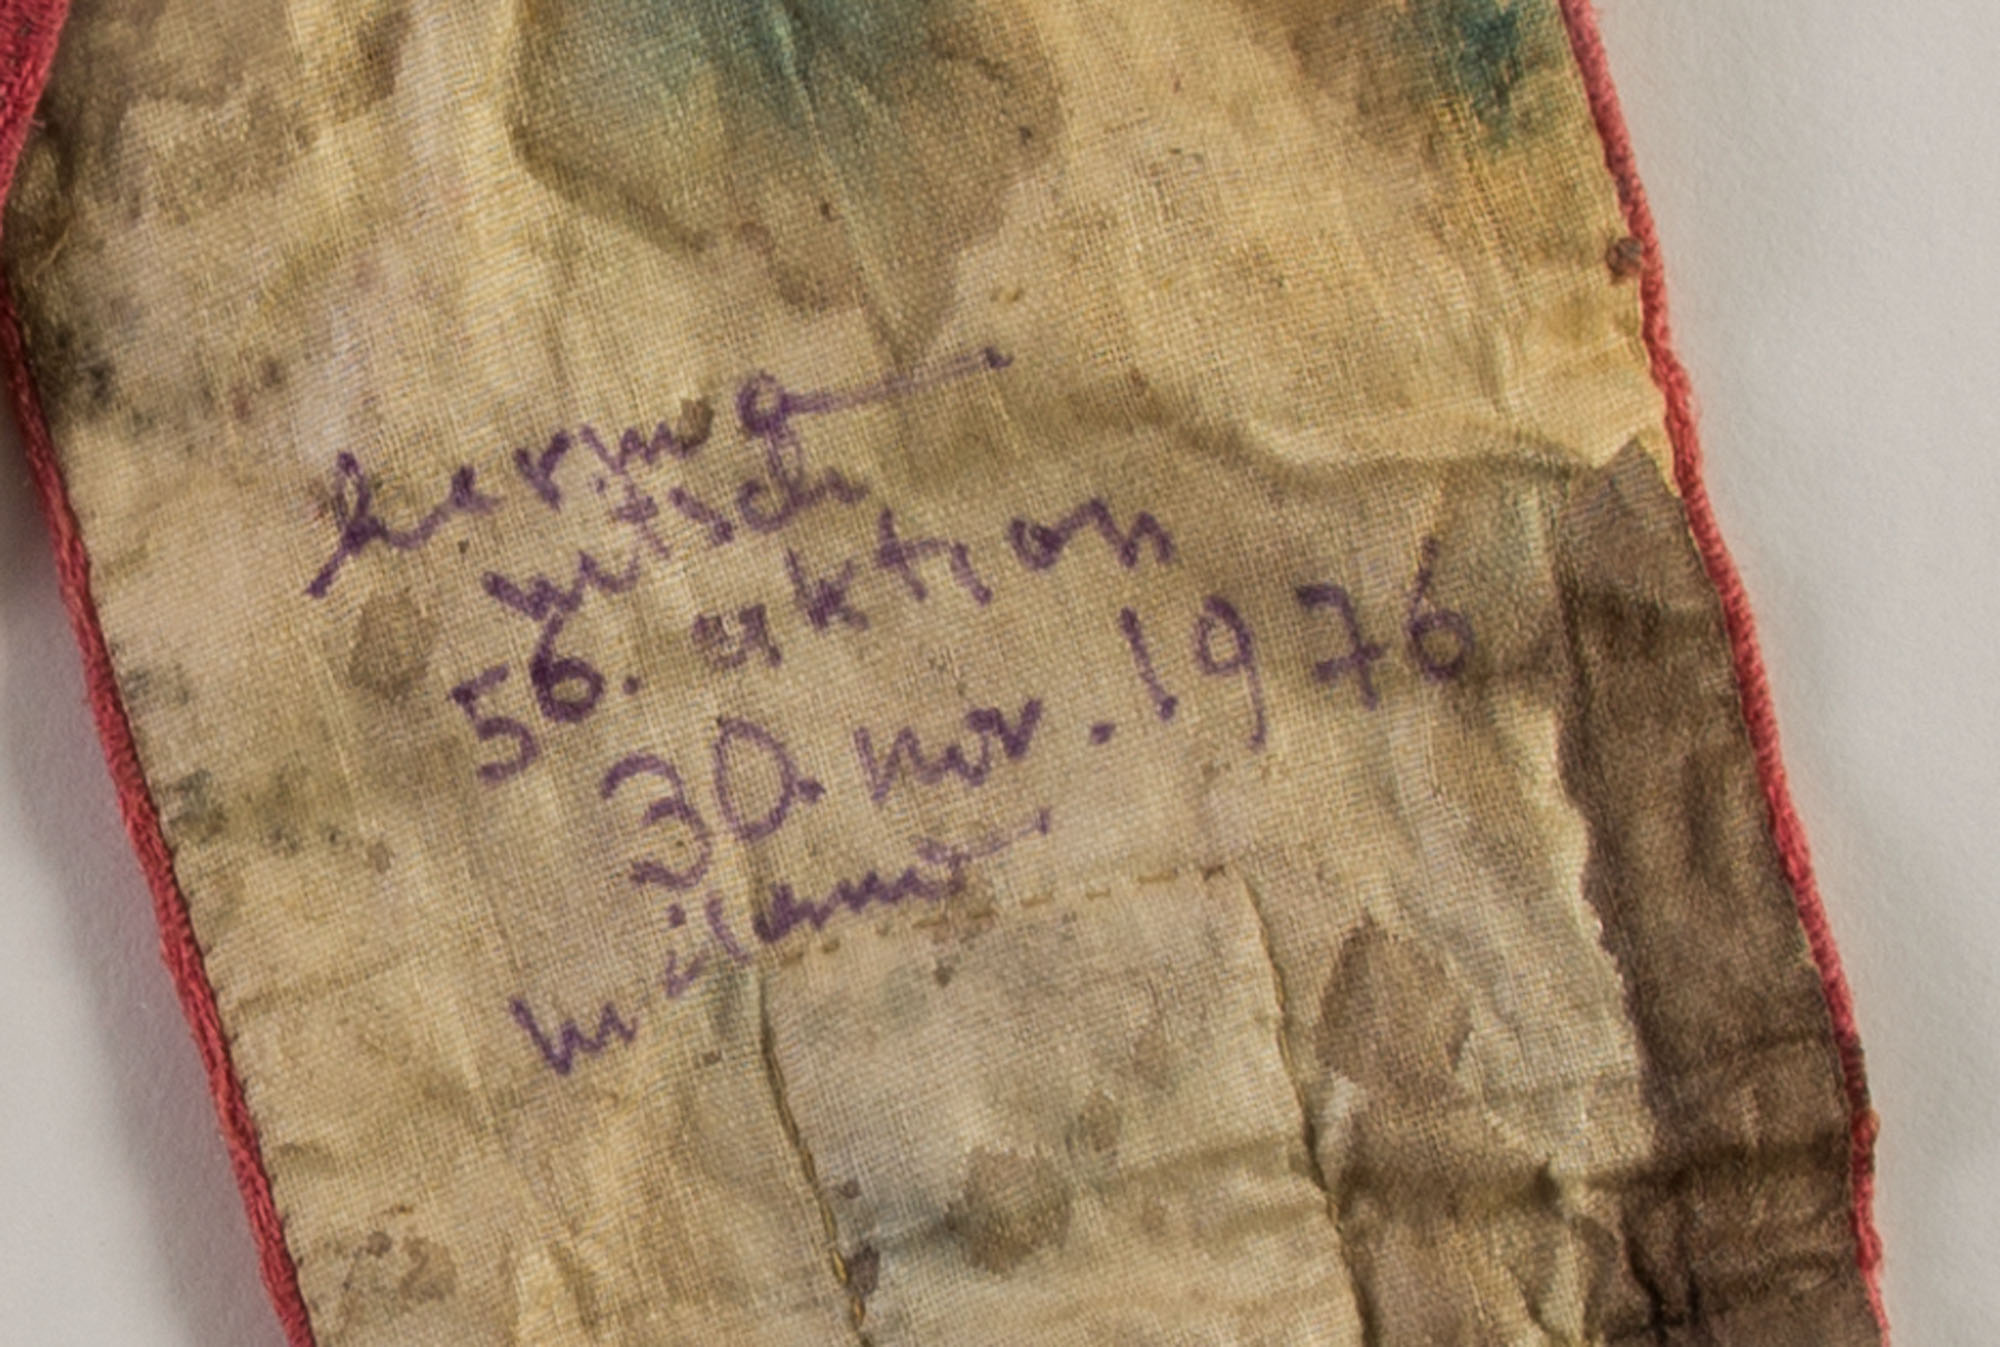 hermann
nitsch
56. aktion
30. nov. 1976
milano